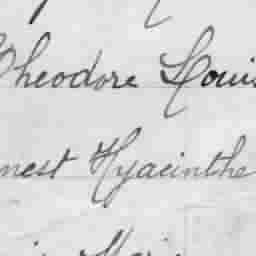 Theodore Louis
nest Hyacinthe